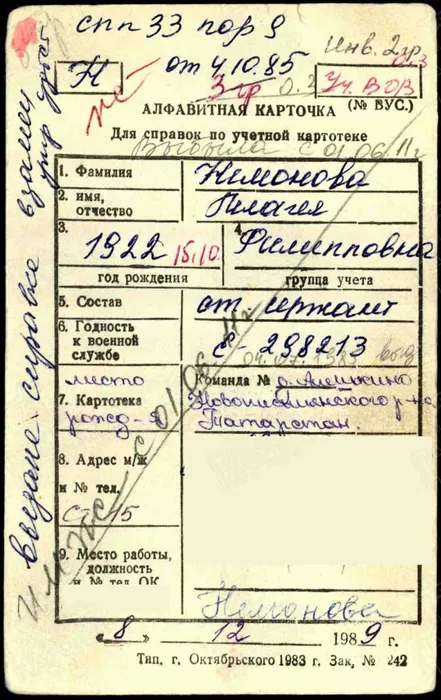 спп 33 пор 9
Инв. 2гр
Н
от 4.10.85
3 гр
Уч ВОВ
АЛФАВИТНАЯ КАРТОЧКА
(№ ВУС.)
Для справок по учетной картотеке
Выбыла с 01 06 11г
1. Фамилия
Немонова
2. имя, отчество
Пелагея
3.
1922 15.10.
4.
Филипповна
год рождения
группа учета
5. Состав
ст. сержант
6. Годность к военной службе
298213
04.07.1985
место
Команда №
7. Картотека
рожд-я
Татарстан.
8. Адрес м/ж и № тел.
15
9. Место работы, должность и № тел. ОК
Немонова
« 8 » 12 1989 г.
Тип. г. Октябрьского 1983 г. Зак, № 242
выдана справка взамен
с 01 06 11г